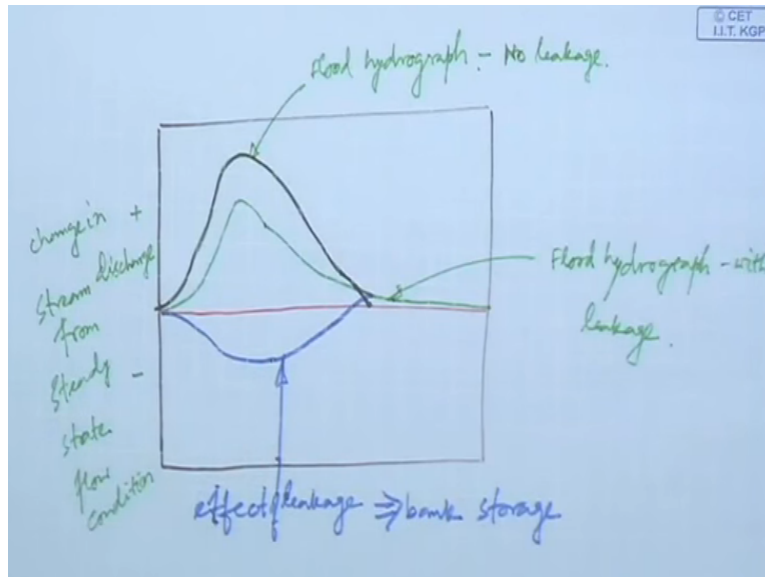 © CET
I.I.T. KGP
Flood hydrograph - No leakage.
change in +
stream discharge
from
steady -
state
flow
condition
Flood hydrograph - with
leakage.
effect of leakage ⇒ bank storage